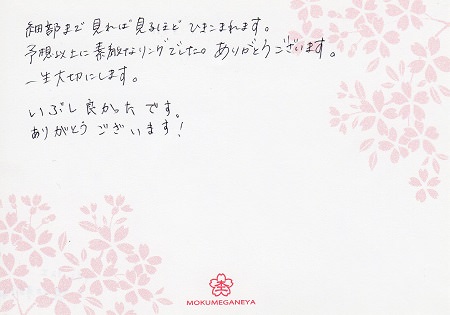 細部まで見れば見るほどひきこまれます。
予想以上に素敵なリングでした。ありがとうございます。
一生大切にします。
いぶし良かったです。
ありがとうございます!
MOKUMEGANEYA